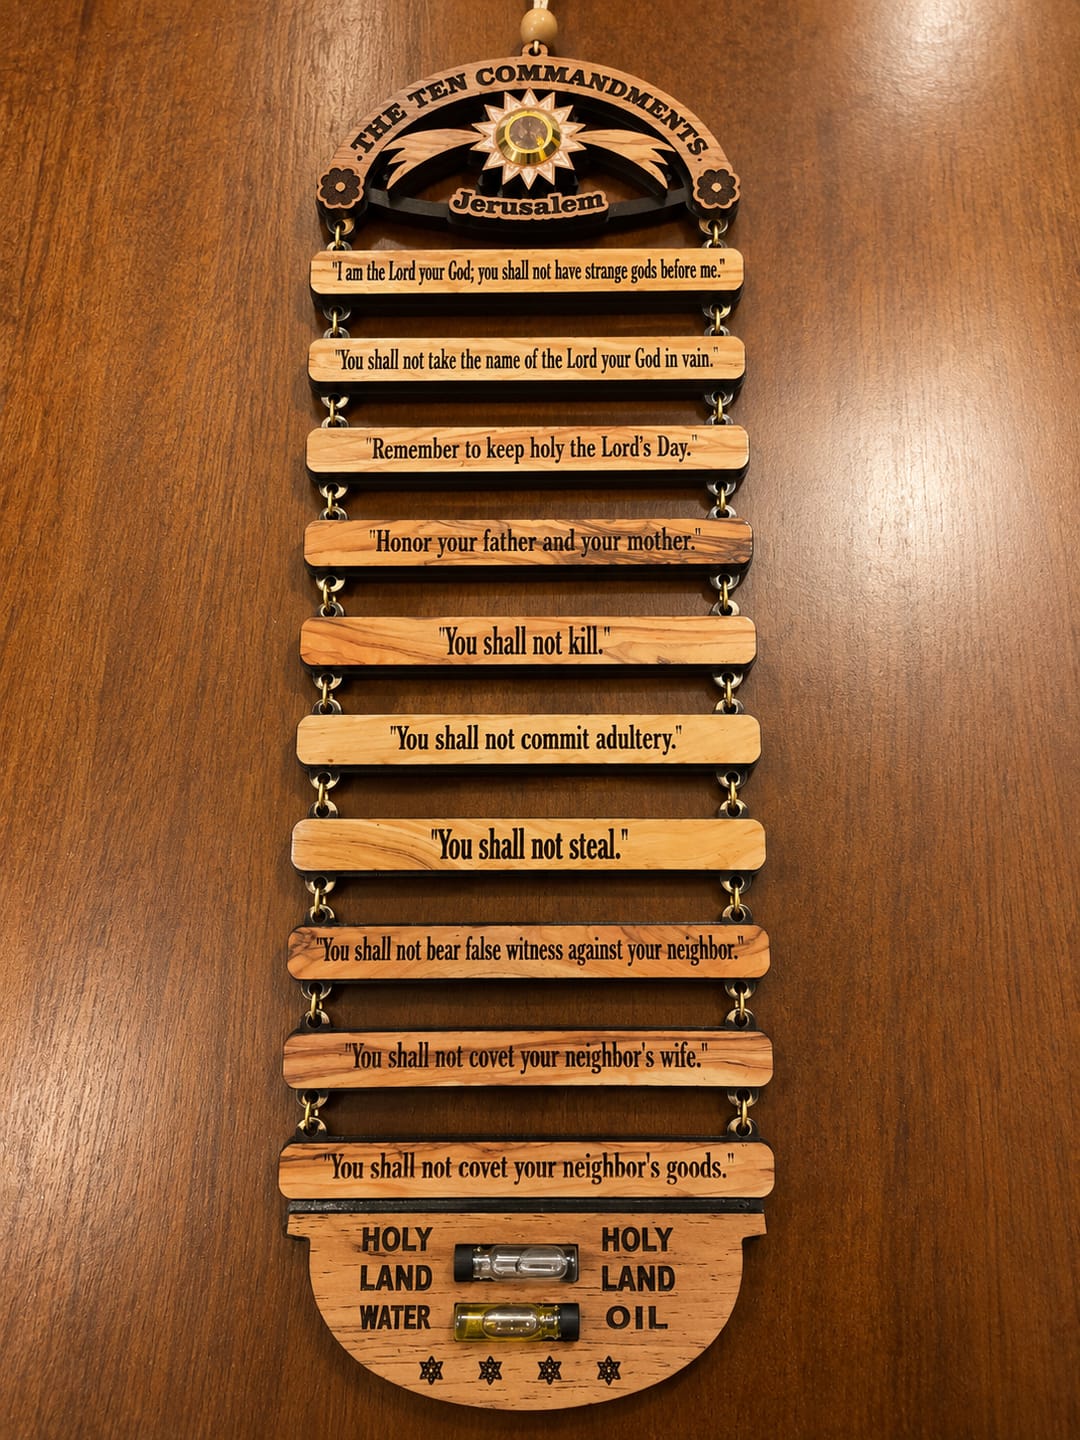 ·THE TEN COMMANDMENTS·
Jerusalem
"I am the Lord your God; you shall not have strange gods before me."
"You shall not take the name of the Lord your God in vain."
"Remember to keep holy the Lord's Day."
"Honor your father and your mother."
"You shall not kill."
"You shall not commit adultery."
"You shall not steal."
"You shall not bear false witness against your neighbor."
"You shall not covet your neighbor's wife."
"You shall not covet your neighbor's goods."
HOLY
LAND
WATER
HOLY
LAND
OIL